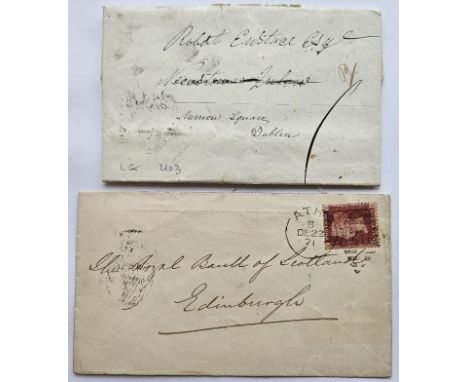 Robert Eustace Esqre
Merrion Square
Dublin
LG 403
ATH
B
DE 22
71
The Royal Bank of Scotland
Edinburgh